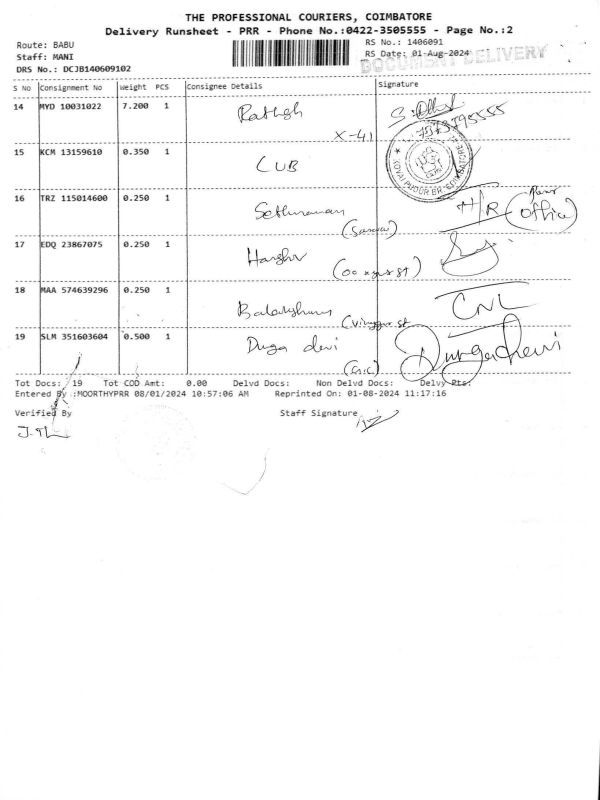 THE PROFESSIONAL COURIERS, COIMBATORE
Delivery Runsheet - PRR - Phone No.:0422-3505555 - Page No.:2
Route: BABU
RS No.: 1406091
Staff: MANI
RS Date: 01-Aug-2024
DOCUMENT DELIVERY
DRS No.: DCJB140609102
S No Consignment No Weight PCS Consignee Details Signature
14 MYD 10031022 7.200 1
X-41
15 KCM 13159610 0.350 1 CUB
KOVAI PUDUR BR. COIMBATORE
16 TRZ 115014600 0.250 1 H/R (office)
17 EDQ 23867075 0.250 1
18 MAA 574639296 0.250 1
19 SLM 351603604 0.500 1 Duga devi Durgadhevi
Tot Docs: 19 Tot COD Amt: 0.00 Delvd Docs: Non Delvd Docs: Delvy Pts:
Entered By :MOORTHYPRR 08/01/2024 10:57:06 AM Reprinted On: 01-08-2024 11:17:16
Verified By Staff Signature